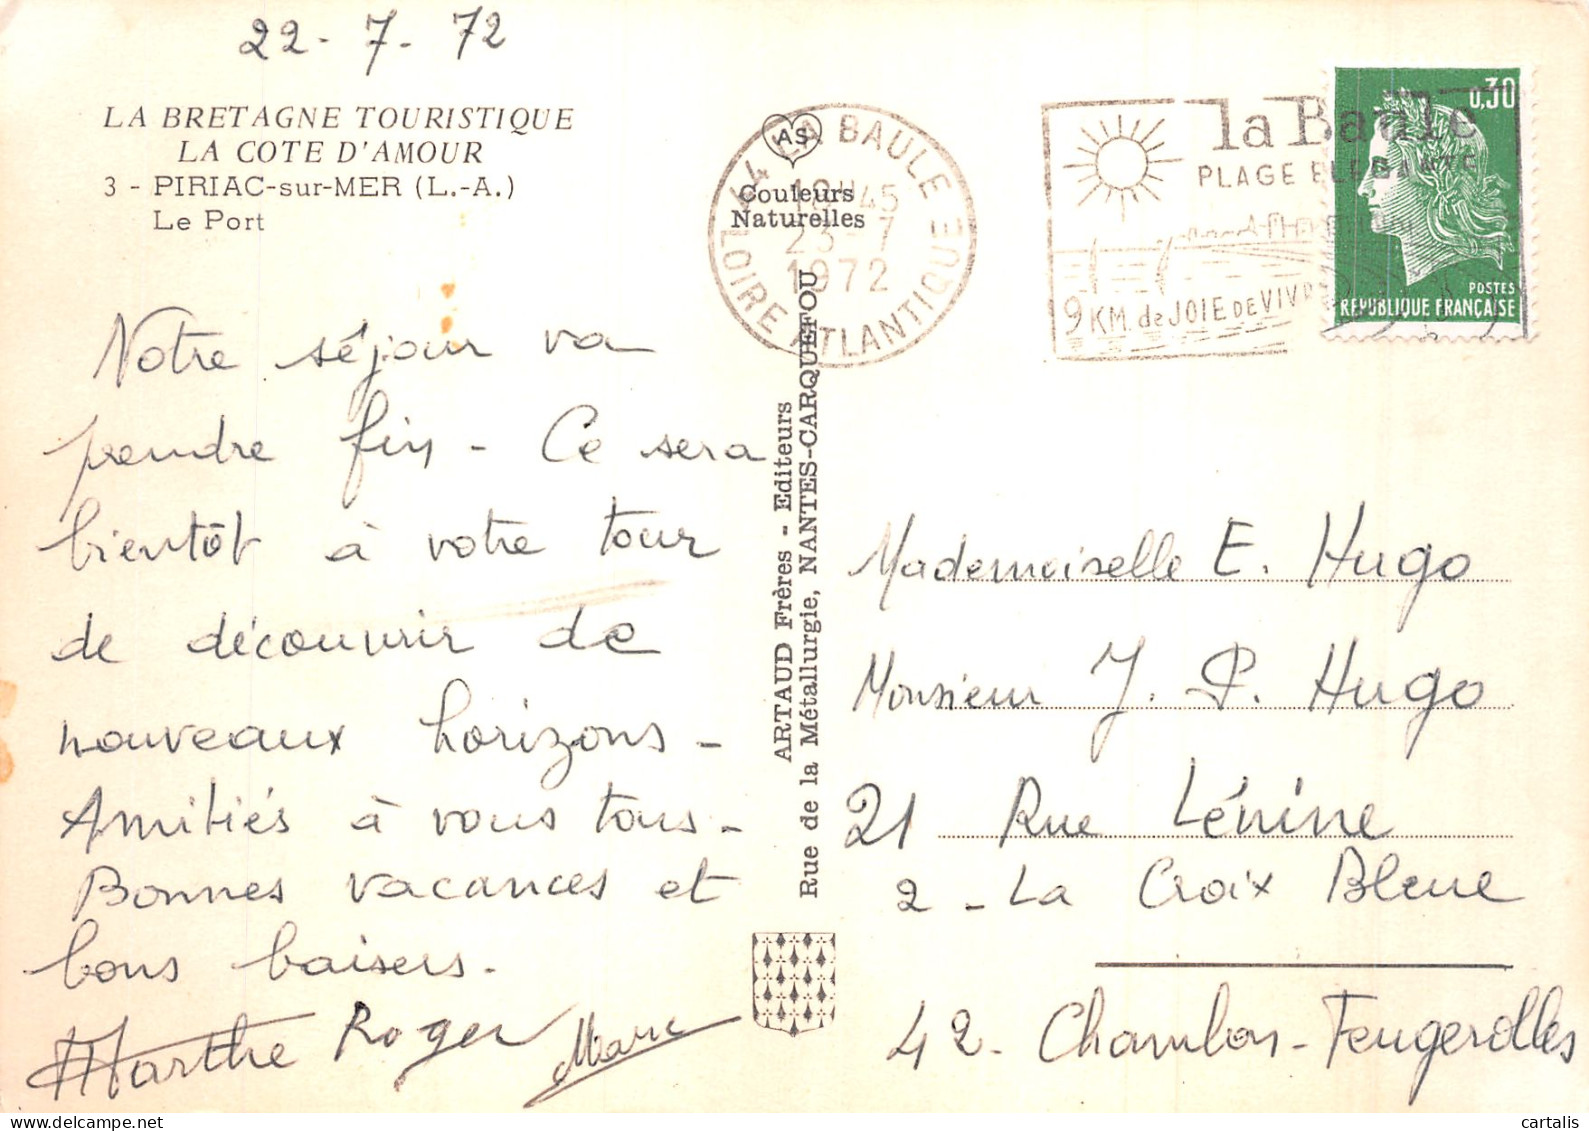 22-7-72
LA BRETAGNE TOURISTIQUE
LA COTE D'AMOUR
3 - PIRIAC-sur-MER (L.-A.)
Le Port
Notre séjour va
prendre fin - Ce sera
bientôt à votre tour
de découvrir de
nouveaux horizons -
Amitiés à vous tous -
Bonnes vacances et
bons baisers.
Marthe Roger Marc
AS
Couleurs
Naturelles
44 LA BAULE
18H45
23-7
1972
LOIRE ATLANTIQUE
ARTAUD Frères - Editeurs
Rue de la Métallurgie, NANTES-CARQUEFOU
la Baule
PLAGE ELEGANTE
9 KM. de JOIE DE VIVRE
0,30
POSTES
REPUBLIQUE FRANÇAISE
Mademoiselle E. Hugo
Monsieur J. P. Hugo
21 Rue Lénine
2 - La Croix Bleue
42 - Chambon-Feugerolles
cartalis